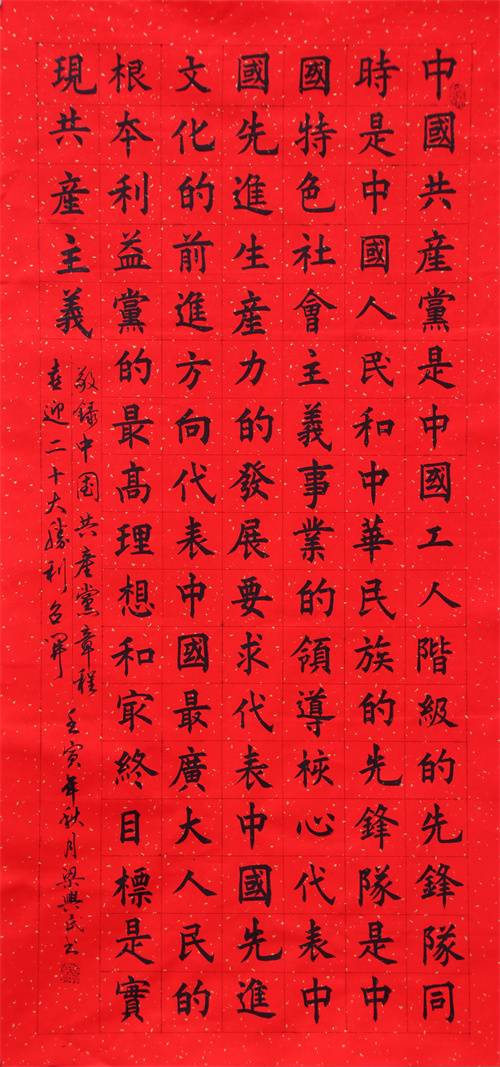 中國共産黨是中國工人階級的先鋒隊同
時是中國人民和中華民族的先鋒隊是中
國特色社會主義事業的領導核心代表中
國先進生産力的發展要求代表中國先進
文化的前進方向代表中國最廣大人民的
根本利益黨的最高理想和最終目標是實
現共産主義
敬錄中国共產黨章程
喜迎二十大勝利召開
壬寅年秋月梁興民书